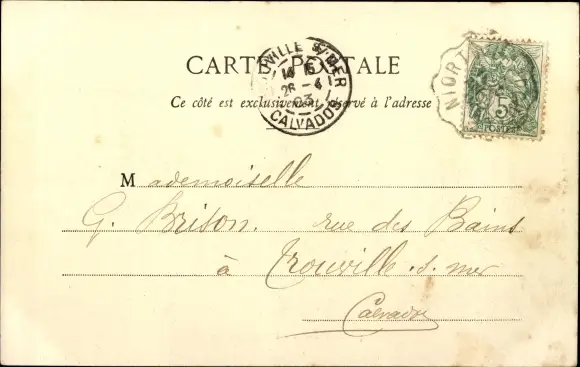 CARTE POSTALE
Ce côté est exclusivement réservé à l'adresse
OUVILLE S/MER
26 - 4
03
CALVADOS
NIORT
5c
POSTES
Mademoiselle
G. Brison. rue des Bains
à Trouville . s. mer
Calvados